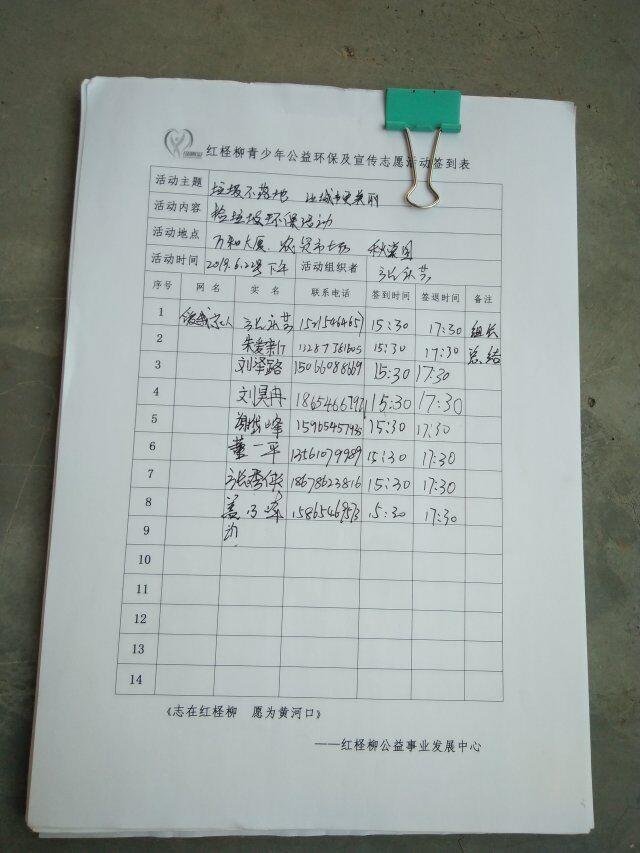 红柽柳青少年公益环保及宣传志愿活动签到表
活动主题 垃圾不落地 让城市更美丽
活动内容 捡垃圾环保活动
活动地点 万和大厦. 农贸市场 秋菊园
活动时间 2019.6.22号下午 活动组织者
序号 网名 实名 联系电话 签到时间 签退时间 备注
1 15:30 17:30 组长
2 15:30 17:30 总结
3 刘泽路 15066088669 15:30 17:30
4 刘昊冉 15:30 17:30
5 15965457935 15:30 17:30
6 董一平 13561079989 15:30 17:30
7 18678623816 15:30 17:30
8 15:30 17:30
9
10
11
12
13
14
《志在红柽柳 愿为黄河口》
——红柽柳公益事业发展中心